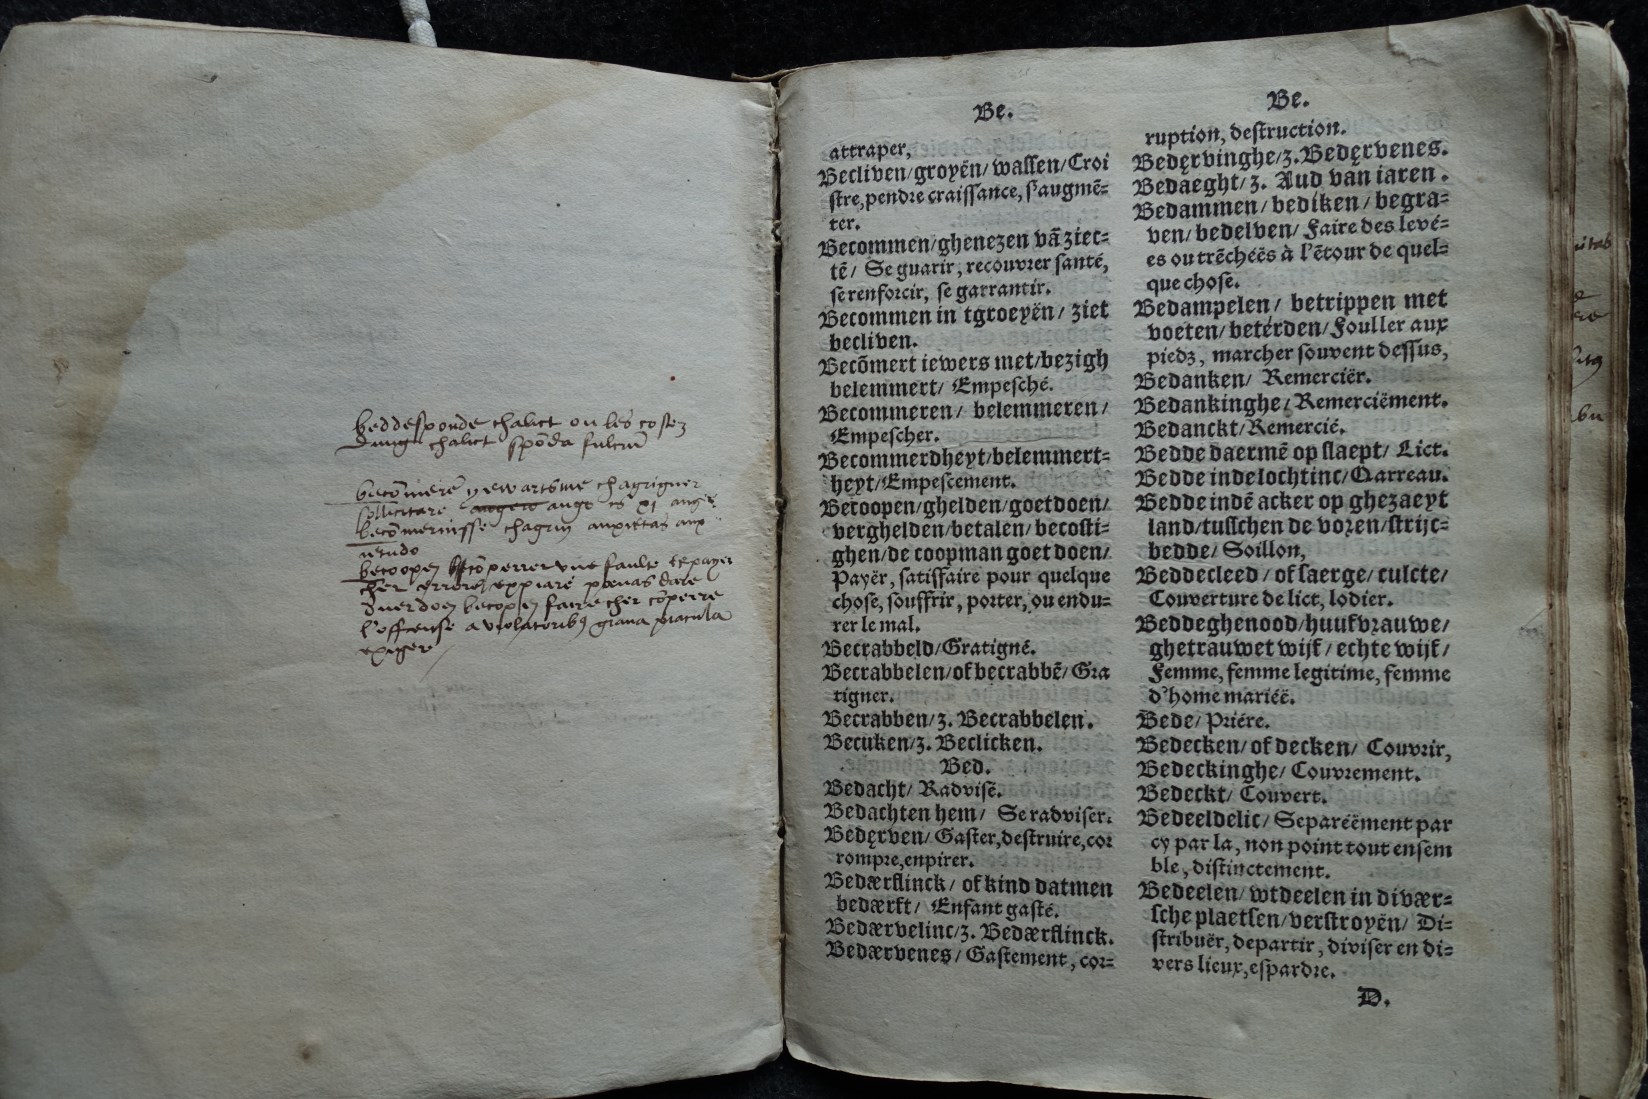 beddesponde chalict ou les costez
dung chalict sponda fulcrũ
becõmerẽ yewartsme chagrigner
sollicitare ango is xi anger
becõmernisse chagrin anxietas anx
ietudo
becoopen cõperrer une faulte & payer
cher errorẽ expiare pœnas dare
duer doen becopen faire cher cõperre
l'offense a violatorib9 grava piacula
exiger
Be.
attraper,
Becliven/groyën/wassen/Croi
stre,pendre craissance, s'augmẽ=
ter.
Becommen/ghenezen vã ziec=
tẽ/ Se guarir, recouvrer santé,
se renforcir, se garrantir.
Becommen in tgroeyën/ ziet
becliven.
Becõmert iewers met/bezigh
belemmert/ Empesché.
Becommeren/ belemmeren/
Empescher.
Becommerdheyt/belemmert=
heyt/Empescement.
Becoopen/ghelden/goet doen/
verghelden/betalen/becosti=
ghen/de coopman goet doen/
Payër, satisfaire pour quelque
chose, souffrir, porter, ou endu=
rer le mal.
Becrabbeld/Gratigné.
Becrabbelen/of becrabbẽ/Gra
tigner.
Becrabben/z. Becrabbelen.
Becuken/z. Beclicken.
Bed.
Bedacht/ Radvisé.
Bedachten hem/ Se radviser.
Bedęrven/ Gaster,destruire,cor
rompre,enpirer.
Bedærflinck/ of kind datmen
bedærft/ Enfant gasté.
Bedærvelinc/z. Bedærflinck.
Bedærvenes/ Gastement, cor=
Be.
ruption, destruction.
Bedęrvinghe/z. Bedęrvenes.
Bedaeght/z. Aud van iaren.
Bedammen/ bediken/ begra=
ven/ bedelven/ Faire des levé=
es ou trẽchéës à l'ẽtour de quel=
que chose.
Bedampelen/ betrippen met
voeten/betérden/Fouller aux
piedz, marcher souvent dessus,
Bedanken/ Remerciër.
Bedankinghe/Remerciëment.
Bedanckt/Remercié.
Bedde daermẽ op slaept/ Lict.
Bedde inde lochtinc/Qarreau.
Bedde indẽ acker op ghezaeyt
land/tusschen de vozen/strijc=
bedde/ Soillon,
Beddecleed/ of saerge/ culcte/
Couverture de lict, lodier.
Beddeghenood/huufvrauwe/
ghetrauwet wijf/ echte wijf/
Femme, femme legitime, femme
d'home mariéë.
Bede/ Priére.
Bedecken/ of decken/ Couvrir,
Bedeckinghe/ Couvrement.
Bedeckt/ Couvert.
Bedeeldelic/ Separéëment par
cy par la, non point tout ensem
ble, distinctement.
Bedeelen/ wtdeelen in divær=
sche plaetsen/verstroyën/ Di=
stribuër, departir, diviser en di=
vers lieux,espardre.
D.